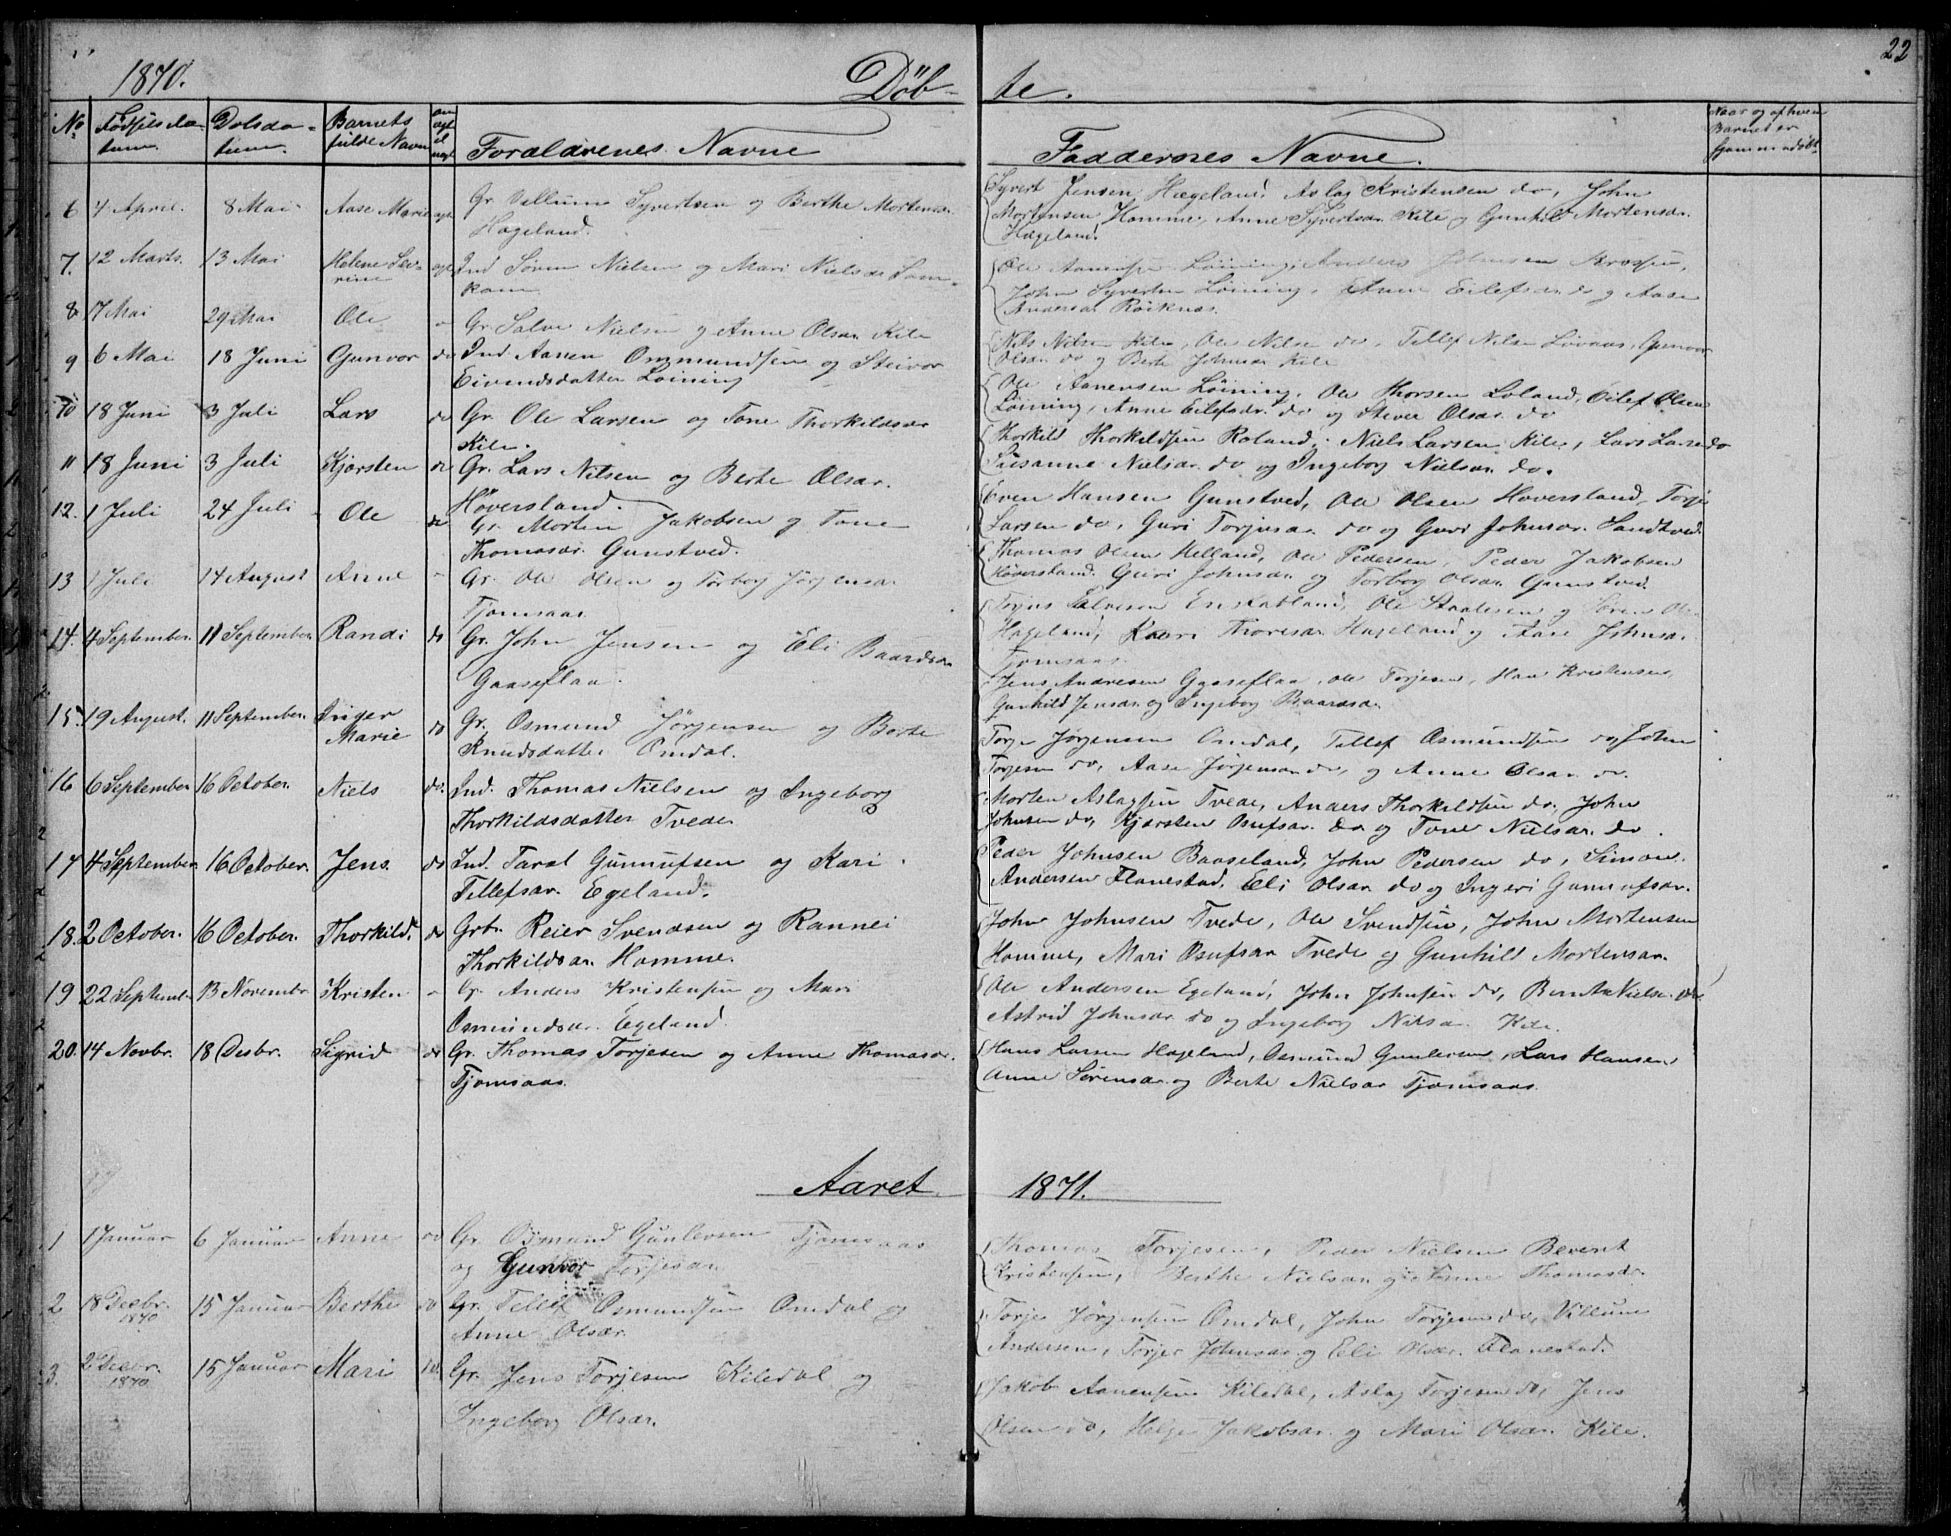 22
1870. Döb- te.
No Fødselsda- Dobsda- Barnets Forældrenes Navne Faddernes Navne. Naar og af hvem
tum. tum. fulde Navn Barnet er
hjemmedöbt
6 4 April. 8 Mai Aase Marie Gr. Villum Syvertsen og Berthe Mortensdr.
Hægeland.
Syvert Jensen Hægeland, Aslag Kristensen do, John
Mortensen Homme, Anne Syvertsdr. Kile og Gunhild Mortensdr.
Hægeland.
7. 12 Marts. 13 Mai Helene Sev- Ind Sören Nielsen og Mari Nielsdr
rine
Ole Aanensen Löining, Anders Johnsen
John Syvertsen Löining, Anne Eilefsdr. do og Aase
Andersdr. Röiknes.
8. 7 Mai 29 Mai Ole Gr. Salve Nielsen og Anne Olsdr. Kile
Nils Nilsen Kile, Ole Nilsen do, Tellef Nilsen Gunvor
Olsdr. do og Berte Johnsdr. Kile
9 6 Mai 18 Juni Gunvor do Ind. Aanen Ommundsen og Steivor
Eivindsdatter Löining
Ole Aanensen Löining, Ole Thorsen Loland, Eilef Olsen
Löining, Anne Eilefsdr. do og Olsdr. do
10 18 Juni 3 Juli Lars do Gr. Ole Larsen og Tone Thorkildsdr
Kile.
Thorkild Thorkildsen Roland, Niels Larsen Kile, Lars Larsen do
Susanne Nielsdr. do og Ingeborg Nielsdr. do.
11 18 Juni 3 Juli Kjersten do Gr. Lars Nilsen og Berte Olsdr.
Höversland.
Even Hansen Gunstved, Ole Olsen Höversland, Torje
Larsen do, Guri Torjusdr. do og Guri Johnsdr. Sandtved.
12. 1 Juli 24 Juli Ole do Gr. Morten Jakobsen og Tone
Thomasdr. Gunstved.
Thomas Olsen Helland, Ole Pedersen, Peder Jakobsen
Höversland. Guri Johnsdr. og Torborg Olsdr. Gunstved.
13 1 Juli 14 August Anne Gr. Ole Olsen og Torborg Jörgensdr.
Tjomsaas.
Torjus Salvesen Ole og Sören
Hægeland, Kari Thoresdr. Hægeland og Aase Johnsdr.
Tjomsaas.
14. 4 September. 11 September. Randi do Gr. John Jensen og Eli Baardsdr.
Gaaseflaa.
Jens Andresen Gaaseflaa, Ole Torjesen, Kristensen,
Gunhild Jensdr. og Ingeborg Baardsdr.
15. 19 August. 11 September. Inger do Gr. Osmund Jörgensen og Berte
Marie Knudsdatter Omdal.
Torje Jörgensen Omdal, Tellef Osmundsen do, John
Torjesen do, Aase Jörgensdr. do, og Anne Olsdr. do.
16 6 September 16 October. Niels do. Ind. Thomas Nielsen og Ingeborg
Thorkildsdatter Tvede
Morten Aslagsen Tvede, Anders Thorkildsen do, John
Johnsen do, Kjersten Osufsdr. do og Tone Nielsdr. do.
17 4 September 16 October. Jens. do Ind. Taral Gunnufsen og Kari
Tellefsdr. Egeland.
Peder Johnsen Baaseland, John Pedersen do, Simon
Andersen Flanestad, Eli Olsdr. do og Ingeri Gunnufsdr.
18. 2 October. 16 October. Thorkild. do Grbr. Reier Svendsen og Rannei
Thorkildsdr. Homme.
John Johnsen Tvede, Ole Svendsen, John Mortensen
Homme, Mari Osufsdr Tvede og Gunhild Mortensdr.
19 22 Septembr 13 Novembr. Kristen Gr. Anders Kristensen og Mari
Osmundsdr. Egeland.
Ole Andersen Egeland, John Johnsen do, Nielsen do
Astrid Johnsdr. do og Ingeborg Nilsdr. Kile.
20. 14 Novbr. 18 Desbr. Sigrid do Gr. Thomas Torjesen og Anne Thomasdr.
Tjomsaas.
Hans Larsen Hægeland, Osmund Gunlevsen, Lars Hansen
Anne Sörensdr. og Berte Nielsdr Tjomsaas.
Aaret 1871.
1 1 Januar 6 Januar Anne do Gr. Osmund Gunlevsen Tjomsaas
og Gunvor Torjesdr.
Thomas Torjesen, Peder Nielsen Berent
Kristensen, Berthe Nielsdr og Anne Thomasdr.
2 18 Decbr. 15 Januar Berthe do Gr. Tellef Osmundsen Omdal og
1870 Anne Olsdr.
Torje Jörgensen Omdal, John Torjesen do, Villum
Andersen, Torjer Johnsdr. og Eli Olsdr. Flanestad.
3. 2 Decbr. 15 Januar Mari do. Gr. Jens Torjesen Kiledal og
1870 Ingeborg Olsdr.
Jakob Aanensen Kiledal, Aslag Torjesen do, Jens
Olsen do, Helge Jakobsdr. og Mari Olsdr. Kile.